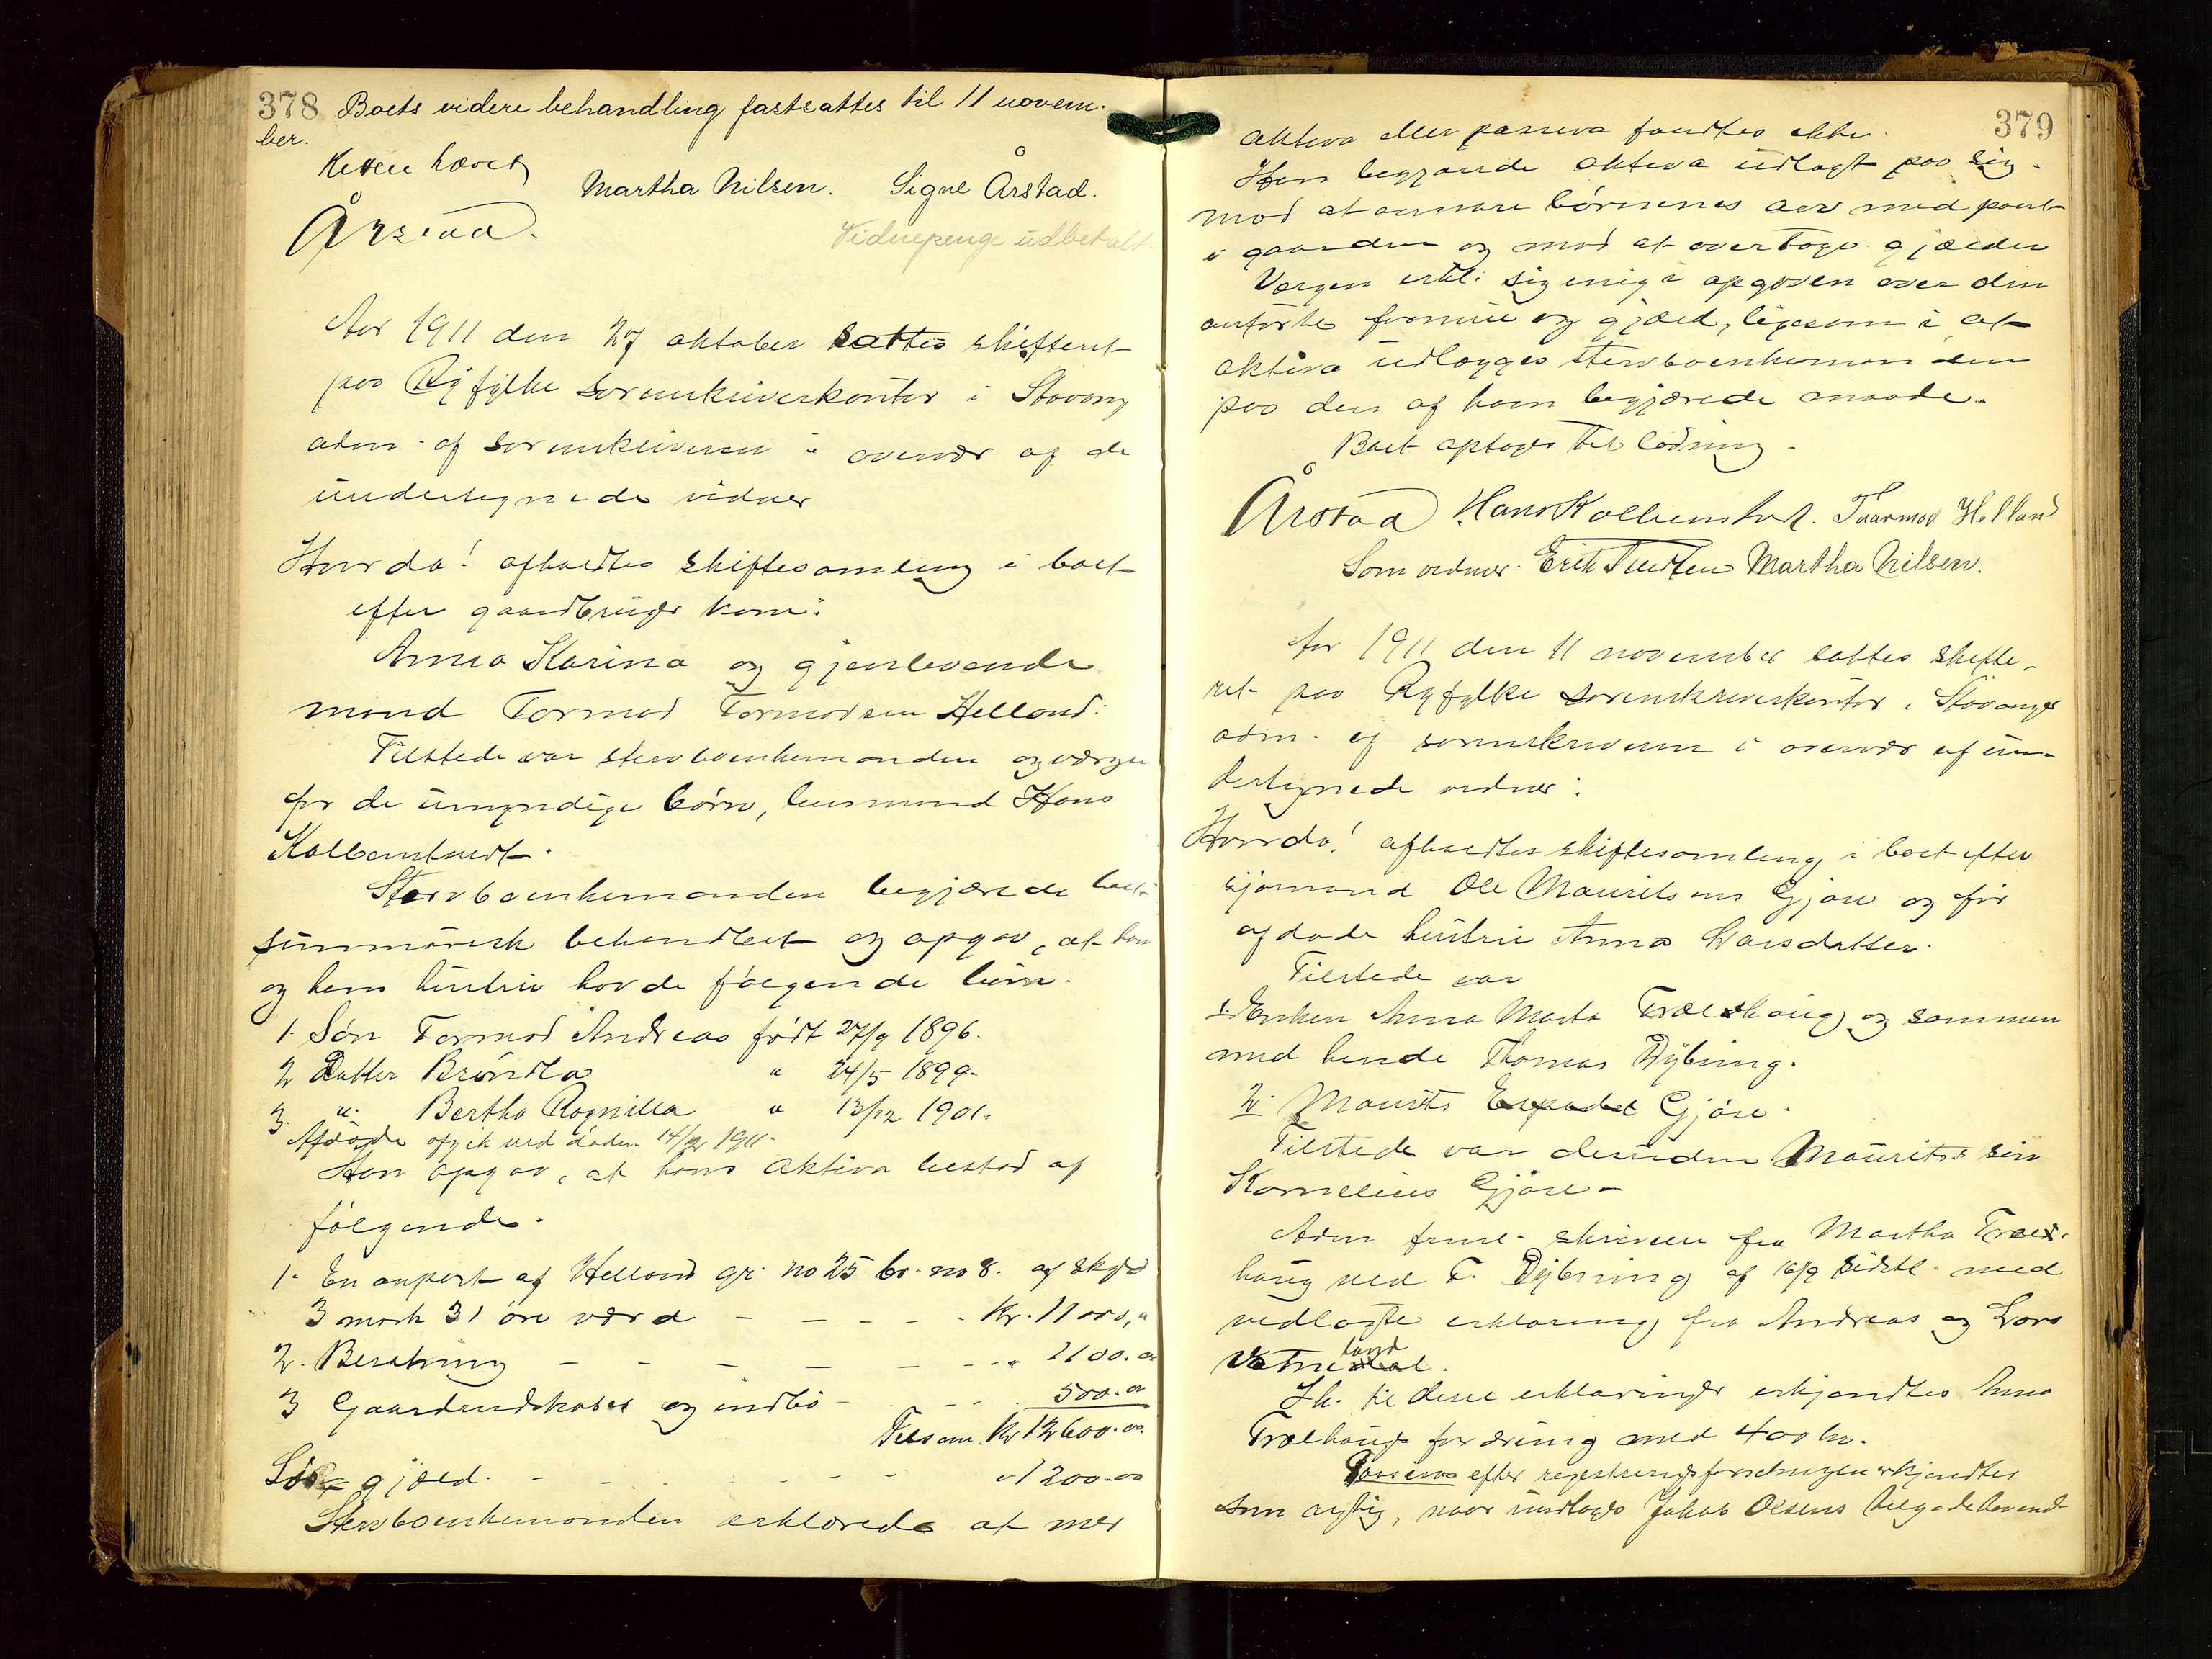 378 Boets videre behandling fastsattes til 11 novem-
ber.
Retten hævet
Martha Nilsen. Signe Årstad.
Årstad.
Vidnepenge udbetalt
Aar 1911 den 27 oktober sattes skifteret
paa Ryfylke sorenskriverkontor i Stavang
adm. af sorenskriveren i overvær af de
undertegnede vidner
Hvorda! afholdtes skiftesamling i boet
efter gaardbruger kone:
Anna Karina og gjenlevende
mand Tormod Tormodsen Helland:
Tilstede var stervboenkemanden og værgen
for de umyndige børn, husmand Hans
Kolbenstvedt.
Stervboenkemanden begjærede boet
summarisk behandlet og opgav, at han
og hans hustru havde følgende børn.
1. Søn Tormod Andreas født 27/9 1896.
2 Datter Brøndla " 24/5 1899.
3. " Bertha Ragnilla " 13/12 1901.
Afdøde afgik ved døden 14/2 1911.
Han opgav, at hans aktiva bestod af
følgende.
1. En anpart af Helland gr. no 25 br. no 8. af skyld
3 mark 31 øre værd - - - - Kr. 11000,"
2. Besætning - - - - - " 1100.00
3 Gaardredskaber og indbo - - - 500.00
Tilsam. Kr 12600.00.
Løs gjæld. - - - - - " 1200.00
Stervboenkemanden erklærede at mer
379
aktiva eller passiva fandtes ikke.
Han begjærede aktiva udlagt paa sig.
mod at avvare børnenes arv med pant
i gaarden og mod at overtage gjælden
Værgen erkl. sig enig i opgaven over den
anførte formue og gjæld, ligesom i at
aktiva udlægges stervboenkemanden
paa den af ham begjærede maade.
Boet optoges til lodning.
Årstad Hans Kolbenstvet. Taarmod Helland
Som vidner: Erik Martha Nilsen.
Aar 1911 den 11 november sattes skifte-
ret paa Ryfylke sorenskriverkontor i Stavanger
adm. af sorenskriveren i overvær af un-
dertegnede vidner:
Hvorda! afholdtes skiftesamling i boet efter
sjømand Ole Mauritsens Gjøse og før
afdøde hustru Anna Larsdatter.
Tilstede var
1 Enken Anna Marta Trælhaug og sammen
med hende Thomas Dybing.
2. Maurits Gjøse.
Tilstede var desuden Maurits's søn
Kornelius Gjøse-
Adm freml. skrivelse fra Martha Træl-
haug ved T. Dybing af 16/9 sidstl. med
vedlagte erklæring fra Andreas og Lars
Vatneland.
I h. til disse erklæringer erkjendtes Anna
Trælhaugs fordring med 400 kr.
Passiva efter registreringsforretningen erkjendtes
som rigtig, naar undtages Jakob Olsens tilgodehavend